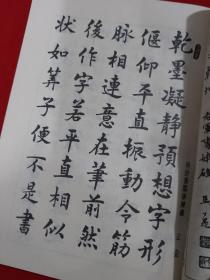 乾墨凝静預想字形
偃仰平直振動令筋
脉相連意在筆前然
後作字若平直相似
状如筭子便不是書